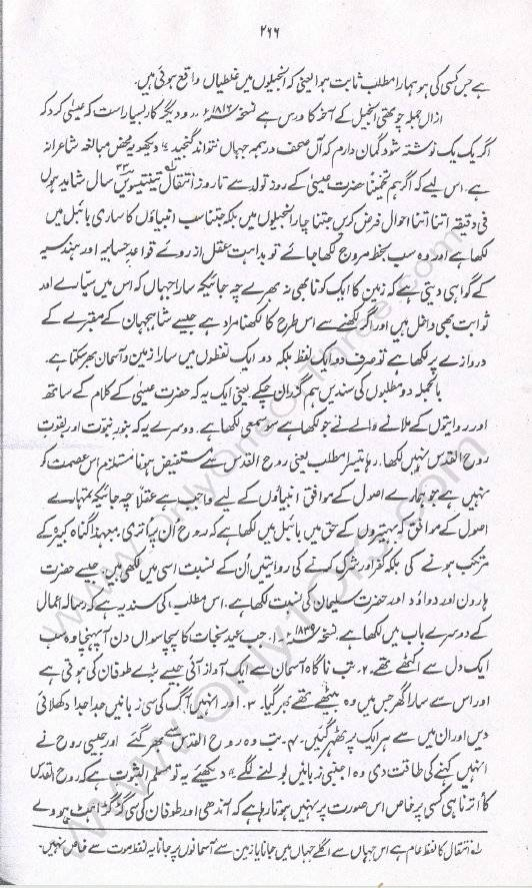 ۲۶۶
ہے جس کسی کی ہو ہمارا مطلب ثابت ہوا یعنی کہ انجیلوں میں غلطیاں واقع ہوئی ہیں۔
ازاں جملہ چوتھی انجیل کے آخر کا ورس ہے نسخہ ۱۸۱۶ء و دیگر کار بسیار است کہ عیسیٰ کرد کہ
اگر یک یک نوشتہ شود گمان دارم کہ آں صحف در ہمہ جہاں نتواند گنجید۔ دیکھو یہ محض مبالغہ شاعرانہ
ہے۔ اس لیے کہ اگر ہم تخمیناً حضرت عیسیٰ کے روز تولد سے تا روز انتقال تینتیسویں ۳۳ سال شاید ہوں
فی دقیقہ اتنا اتنا احوال فرض کریں جتنا چار انجیلوں میں بلکہ جتنا سب انبیاؤں کا ساری بائبل میں
لکھا ہے اور وہ سب بخط مروج لکھا جائے تو بداہت عقل از روئے قواعد حسابیہ اور ہندسیہ
کے گواہی دیتی ہے کہ زمین کا ایک کونا بھی نہ بھرے چہ جائیکہ سارا جہاں کہ اس میں سیارے اور
ثوابت بھی داخل ہیں اور اگر لکھنے سے اس طرح کا لکھنا مراد ہے جیسے شاہجہان کے مقبرے کے
دروازے پر لکھا ہے تو صرف دو ایک لفظ بلکہ دو ایک نقطوں میں سارا زمین و آسمان بھر سکتا ہے۔
بالجملہ دو مطلبوں کی سندیں ہم گزران چکے یعنی ایک یہ کہ حضرت عیسیٰ کے کلام کے ساتھ
اور روایتوں کے ملانے والے نے جو لکھا ہے سو سمعی لکھا ہے۔ دوسرے یہ کہ بنور نبوت اور بقوت
روح القدس نہیں لکھا۔ رہا تیسرا مطلب یعنی روح القدس سے مستفیض ہونا مستلزم اس عصمت کو
نہیں ہے جو ہمارے اصول کے موافق انبیاؤں کے لیے واجب ہے عقلاً چہ جائیکہ تمہارے
اصول کے موافق کہ بہتیروں کے حق میں بائبل میں لکھا ہے کہ روح اُن پر اتری۔ معہذا گناہ کبیرہ کے
مرتکب ہونے کی بلکہ کفر اور شرک کرنے کی روایتیں اُن کے نسبت اسی میں لکھی ہیں جیسے حضرت
ہارون اور داؤد اور حضرت سلیمان کی نسبت لکھا ہے۔ اس مطلب کی سند یہ ہے کہ رسالہ اعمال
کے دوسرے باب میں لکھا ہے۔ نسخہ ۱۸۳۹ء ۱۔ جب عید سنجات کا پچاسواں دن آپہنچا وہ سب
ایک دل سے اکٹھے تھے۔ ۲۔ تب ناگاہ آسمان سے ایک آواز آئی جیسے بڑے طوفان کی ہوتی ہے
اور اس سے سارا گھر جس میں وہ بیٹھے تھے بھر گیا۔ ۳۔ اور انہیں آگ کی سی زبانیں جدا جدا دکھلائی
دیں اور ان میں سے ہر ایک پر ٹھہر گئیں۔ ۴۔ تب وہ روح القدس سے بھر گئے اور جیسی روح نے
انہیں کہنے کی طاقت دی وہ اجنبی زبانیں بولنے لگے۔ دیکھئے یہ تو مسلم الثبوت ہے کہ روح القدس
کا اترنا ہی کسی پر خاص اس صورت پر نہیں ہوتا رہا ہے کہ آندھی اور طوفان کی سی گڑگڑاہٹ ہووے
۱؎ انتقال کا لفظ عام ہے اس جہاں سے اگلے جہاں میں جانا یا زمین سے آسمانوں پر جانا یہ لفظ موت سے خاص نہیں۔
www.Only1Or3.com
www.OnlyOneOrThree.com